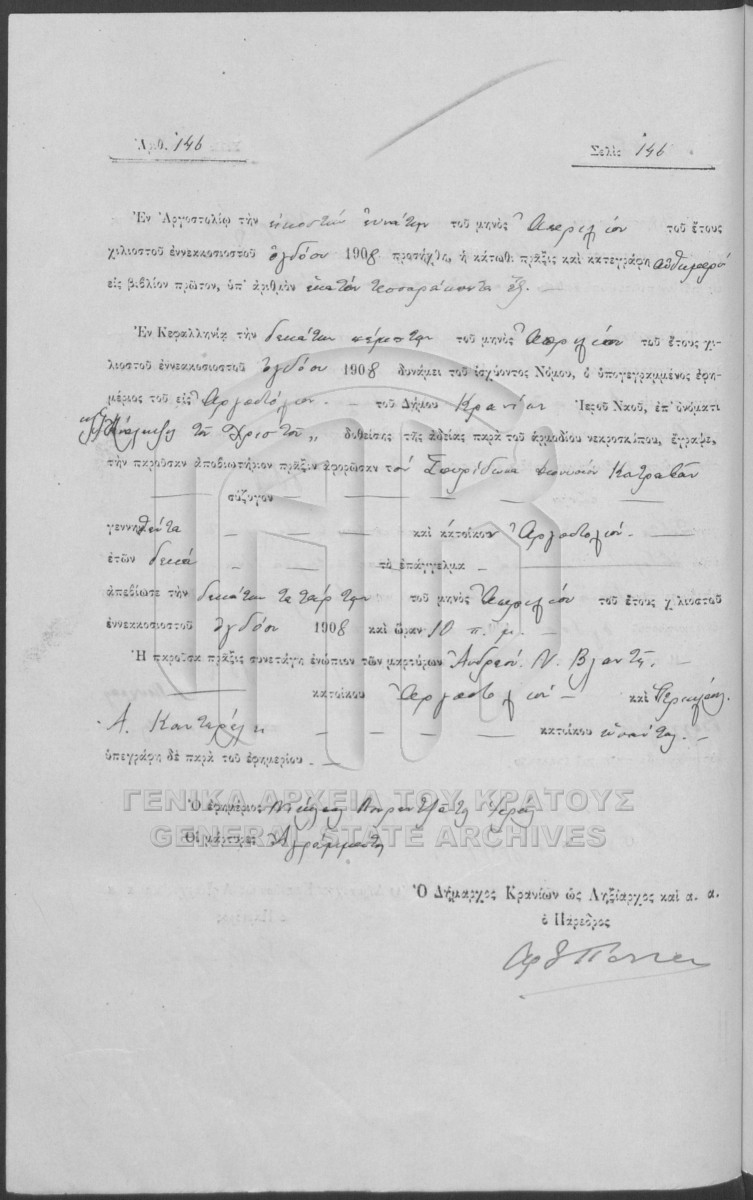 Ἀριθ. 146
Σελὶς 146
Ἐν Ἀργοστολίῳ τὴν εἰκοστὴν ἐννάτην τοῦ μηνὸς Ἀπριλίου τοῦ ἔτους
χιλιοστοῦ ἐννεκκοσιοστοῦ ὀγδόου 1908 προσήχθη, ἡ κάτωθι πρᾶξις καὶ κατεγράφη αὐθημερὸν
εἰς βιβλίον πρῶτον, ὑπ' ἀριθμὸν ἑκατὸν τεσσαράκοντα ἕξ. —
Ἐν Κεφαλληνίᾳ τὴν δεκάτην πέμπτην τοῦ μηνὸς Ἀπριλίου τοῦ ἔτους χι-
λιοστοῦ ἐννεκκοσιοστοῦ ὀγδόου 1908 δυνάμει τοῦ ἰσχύοντος Νόμου, ὁ ὑπογεγραμμένος ἐφη-
μέριος τοῦ εἰς Ἀργοστόλιον — τοῦ Δήμου Κρανίων Ἱεροῦ Ναοῦ, ἐπ' ὀνόματι
Ἀνάληψις τοῦ Χριστοῦ „ δοθείσης τῆς ἀδείας παρὰ τοῦ ἁρμοδίου νεκροσκόπου, ἔγραψε,
τὴν παροῦσαν ἀποβιωτήριον πρᾶξιν ἀφορῶσαν τὸν Σπυρίδωνα Διονυσίου Κατραβᾶν
— σύζυγον — — — — —
γεννηθέντα — — — — καὶ κάτοικον Ἀργοστολίου. —
ἐτῶν δεκα — — — — τὸ ἐπάγγελμα — —
ἀπεβίωσε τὴν δεκάτην τετάρτην τοῦ μηνὸς Ἀπριλίου τοῦ ἔτους χιλιοστοῦ
ἐννεκκοσιοστοῦ ὀγδόου 1908 καὶ ὥραν 10 π. μ. —
Ἡ παροῦσα πρᾶξις συνετάγη ἐνώπιον τῶν μαρτύρων Ἀνδρέου Ν. Βλαντῆ. —
— κατοίκου Ἀργοστολίου — καὶ Περικλέους
Α. — — — — κατοίκου ἐνταῦθα. —
ὑπεγράφη δὲ παρὰ τοῦ ἐφημερίου. — —
Ὁ ἐφημέριος Νικόλαος Ἱερεύς
Οἱ μάρτυρες Ἀγράμματοι
ΓΕΝΙΚΑ ΑΡΧΕΙΑ ΤΟΥ ΚΡΑΤΟΥΣ
GENERAL STATE ARCHIVES
Ὁ Δήμαρχος Κρανίων ὡς Ληξίαρχος καὶ α. α.
ὁ Πάρεδρος